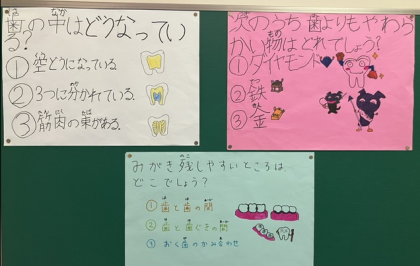 歯の中はどうなってい
る?
①空どうになっている。
②3つに分かれている。
③筋肉の束がある。
次のうち歯よりもやわら
かい物はどれでしょう?
①ダイヤモンド
②鉄
③金
みがき残しやすいところは
どこでしょう?
①歯と歯の間
②歯と歯ぐきの間
③おく歯のかみ合わせ